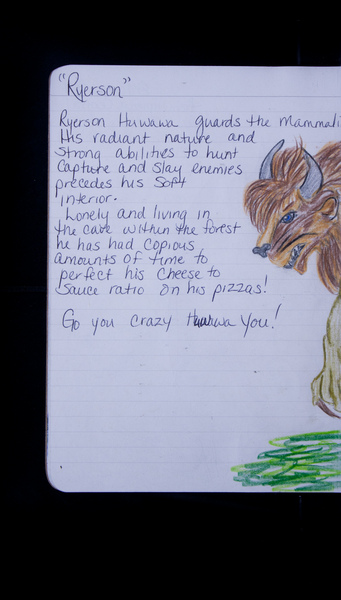 "Ryerson"
Ryerson Huwawa guards the Mammali
His radiant nature and
strong abilities to hunt
capture and slay enemies
precedes his soft
interior.
Lonely and living in
the cave within the forest
he has had copious
amounts of time to
perfect his cheese to
sauce ratio on his pizzas!
Go you crazy Huwawa you!